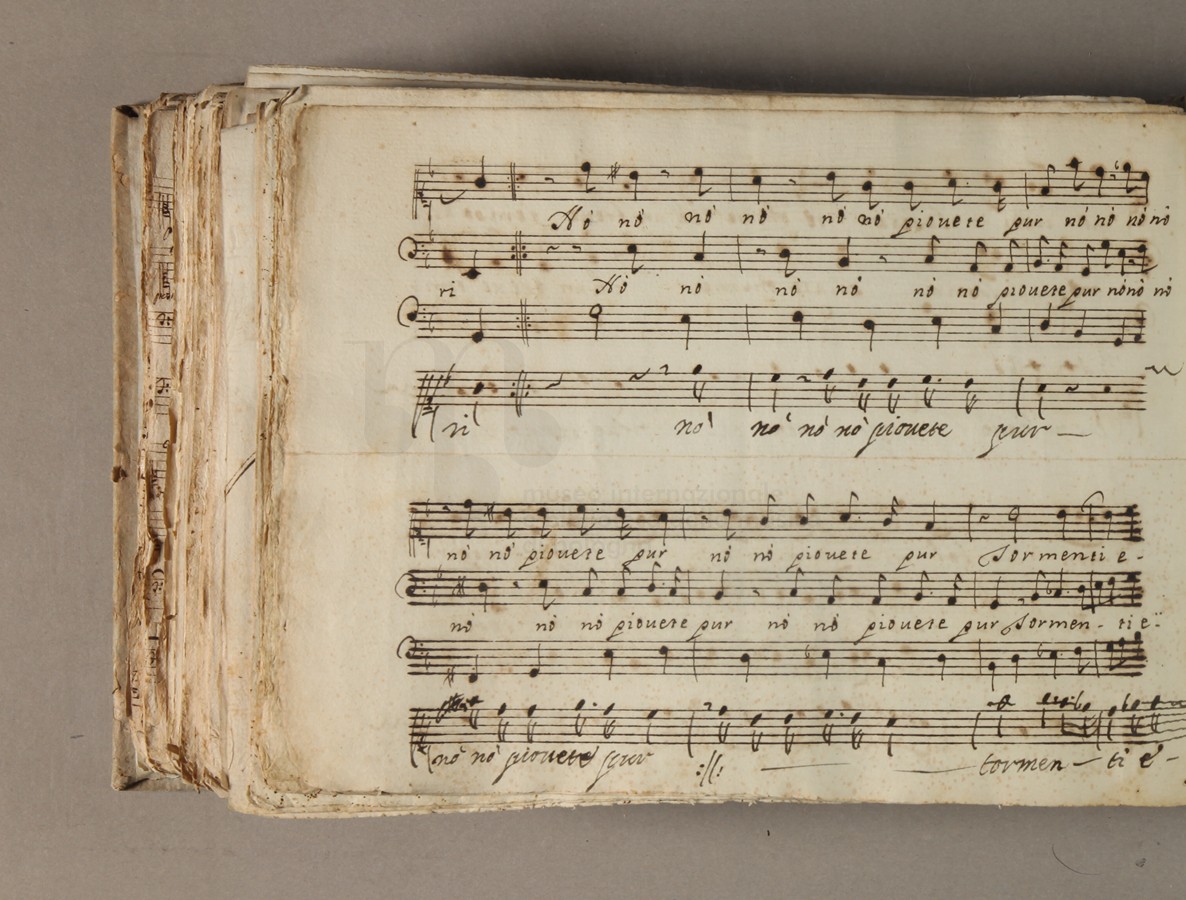 Nò nò nò nò nò nò piouete pur nò nò nò nò
ri Nò nò nò nò nò nò piouete pur nò nò nò
ri nò nò nò nò piouete pur
nò nò piouete pur nò nò piouete pur Tormenti e-
nò nò nò piouete pur nò nò piouete pur Tormen- ti e-
nò nò piouete pur :||: tormen- ti è-
museo internazionale